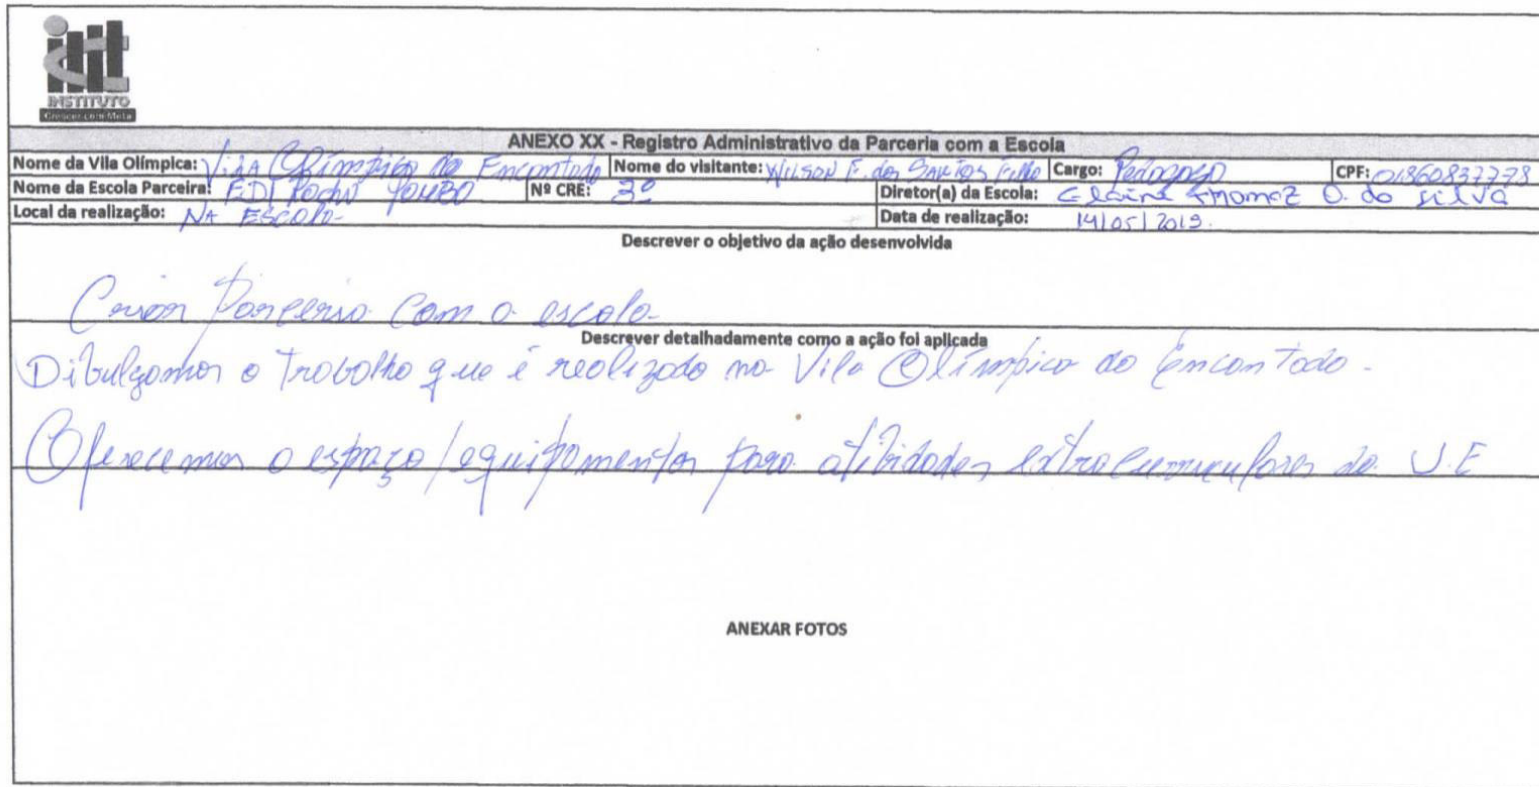 INSTITUTO
Crescer com Meta
ANEXO XX - Registro Administrativo da Parceria com a Escola
Nome da Vila Olímpica: Vila Olímpica do Encantado Nome do visitante: Wilson F. dos Santos Filho Cargo: Pedagogo CPF: 01860837778
Nome da Escola Parceira: EDI Nº CRE: 3º Diretor(a) da Escola: Elaine Thomaz O. da Silva
Local da realização: NA ESCOLA Data de realização: 14/05/2019.
Descrever o objetivo da ação desenvolvida
Criar Parceria Com a escola
Descrever detalhadamente como a ação foi aplicada
Dibulgamos o Trabalho que é realizado na Vila Olímpica do Encantado.
Oferecemos o espaço/equipamentos para atibidades extracurriculares da U.E
ANEXAR FOTOS